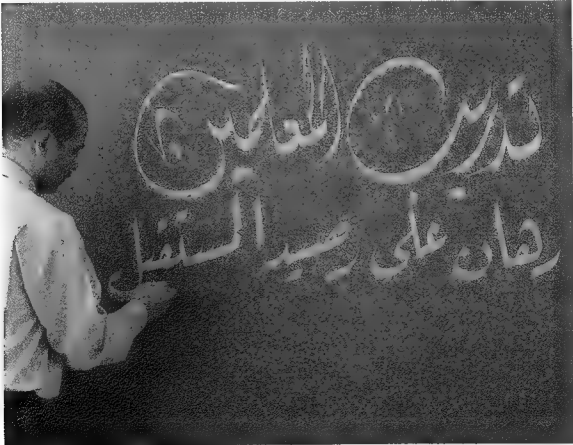 تدريس المعلمين
رهان على رصيد المستقبل